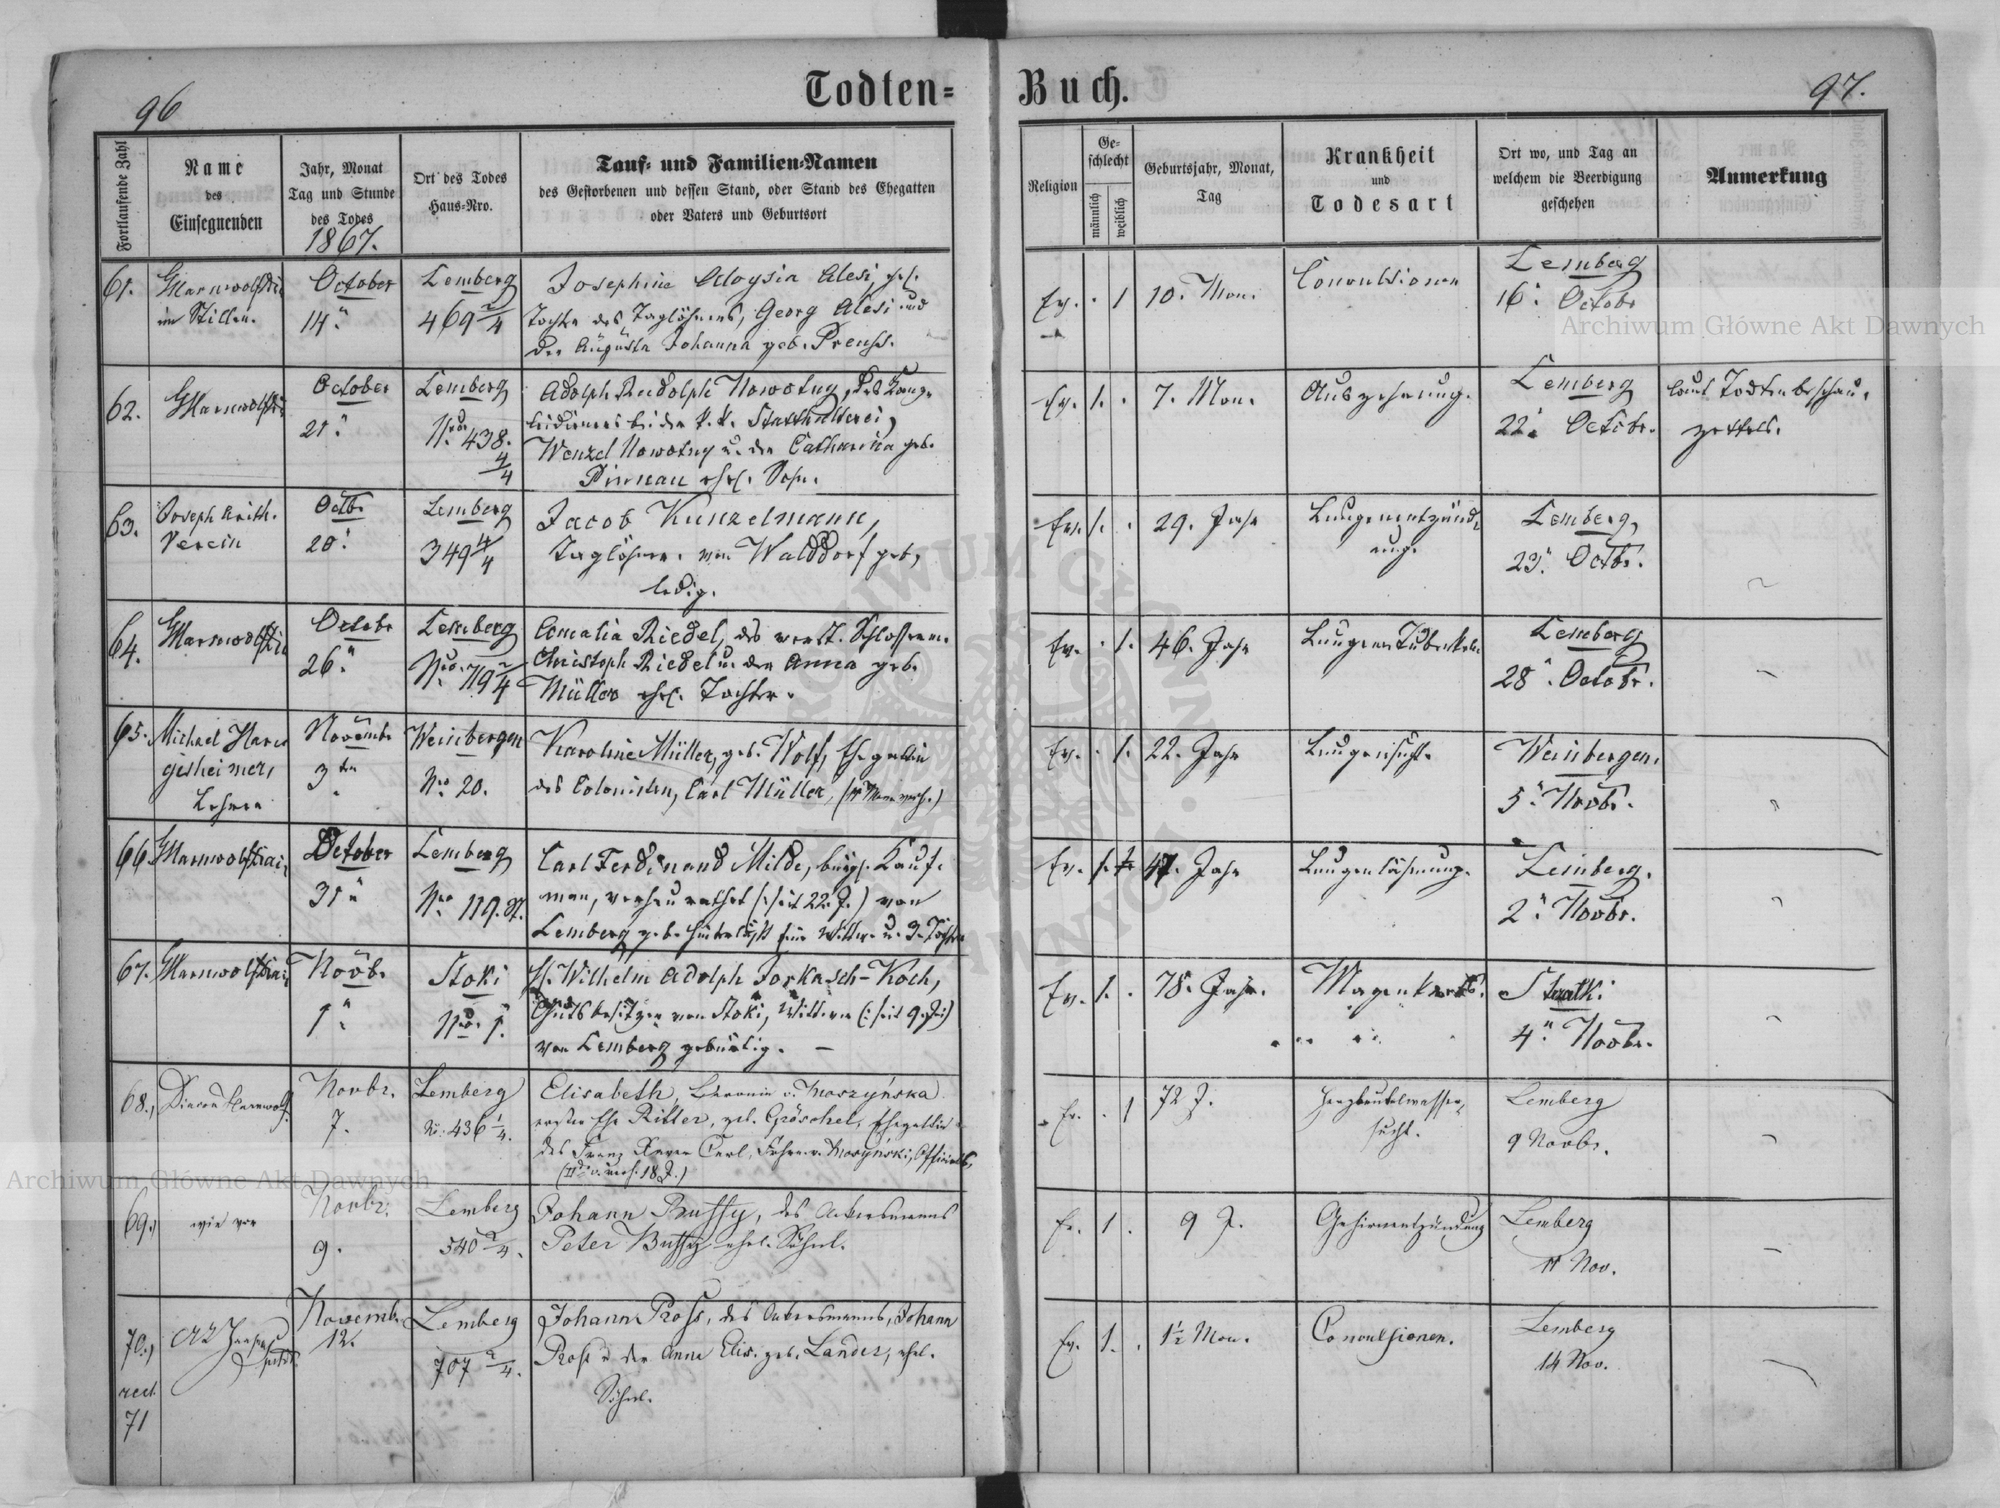 96
Todten-
Buch.
97.
Fortlaufende Zahl
Name
des
Einsegnenden
Jahr, Monat
Tag und Stunde
des Todes
1867.
Ort des Todes
Haus-Nro.
Tauf- und Familien-Namen
des Gestorbenen und dessen Stand, oder Stand des Ehegatten
oder Vaters und Geburtsort
Religion
Ge-
schlecht
männlich
weiblich
Geburtsjahr, Monat,
Tag
Krankheit
und
Todesart
Ort wo, und Tag an
welchem die Beerdigung
geschehen
Anmerkung
61.
im Stillen.
October
14."
Lemberg
469 2/4
Josephine Aloysia Alesi, ehel.
Tochter des Taglöhners, Georg Alesi und
der Augusta Johanna geb. Preuss.
Ev. . 1
10. Mon.
Convulsionen
Lemberg
16. Octobr
62.
October
21."
Lemberg
Nro 438.
4/4
Adolph Rudolph Nowotny, des Kanz-
leidieners bei der k. k. Statthalterei,
Wenzel Nowotny u. der Catharina geb.
Pirnau ehel. Sohn.
Ev. 1. .
7. Mon.
Auszehrung.
Lemberg
22. Octobr.
laut Todtenbeschau-
zettels.
63.
Joseph
Verein
Octb.
20."
Lemberg
349 4/4
Jacob Kunzelmann,
Taglöhner. von Walddorf geb,
ledig.
Ev. 1. .
29. Jahr
Lungenentzünd-
ung.
Lemberg,
23." Octbr.
64.
Octobr
26."
Lemberg
Nro. 719 2/4
Amalia Riedel, des verst. Schlossers
Christoph Riedel u. der Anna geb.
Müller ehel. Tochter.
Ev. . 1.
46. Jahr
Lungen Tuberkeln
Lemberg
28". Octobr.
65.
Michael Haren
gesheimer,
Lehrer
Novembr
3ten
Weinbergen
Nro 20.
Karoline Müller, geb. Wolf, Ehegattin
des Colonisten, Carl Müller,
Ev. . 1.
22. Jahr
Lungensucht.
Weinbergen.
5." Novbr.
66.
October
31"
Lemberg
Nro 119. St.
Carl Ferdinand Milde, bürgl. Kauf-
man, verheurathet (:seit 22. J.) von
Lemberg geb. hinterläßt eine Wittwe u. 3. Töchter
Ev. 1.
47. Jahr
Lungenlähmung.
Lemberg.
2." Novbr.
67.
Novb.
1."
Stoki
Nro. 1.
H. Wilhelm Adolph Jorkasch-Koch,
Gutsbesitzer von Stoki, Wittwer (:seit 9. J:)
von Lemberg gebürtig. —
Ev. 1. .
78. Jahr.
Magenkrebs.
4." Novbr.
68.,
Novbr.
7.
Lemberg
N. 436 1/4.
Elisabeth, Baronin v. Moszyńska
erster Ehe Ritter, geb. Gröschel, Ehegattin
des Franz Xaver Carl, Freiherr v. Moszyński, Officials,
Ev. . 1
72 J.
Herzbeutelwasser-
sucht.
Lemberg
9 Novbr.
69.,
wie vor
Novbr.
9.
Lemberg
540 2/4.
Johann Bussy, des Ackersmanns
Peter Bussy ehel. Söhnl.
Ev. 1 .
9 J.
Gehirnentzündung
Lemberg
11 Nov.
70.,
rect
71
Novemb.
12.
Lemberg
707 2/4.
Johann Pross, des Ackersmanns, Johann
Pross u. der Anna Elis. geb. Lander, ehel.
Söhnl.
Ev. 1. .
1½ Mon.
Convulsionen.
Lemberg
14 Nov.
Archiwum Główne Akt Dawnych
Archiwum Główne Akt Dawnych